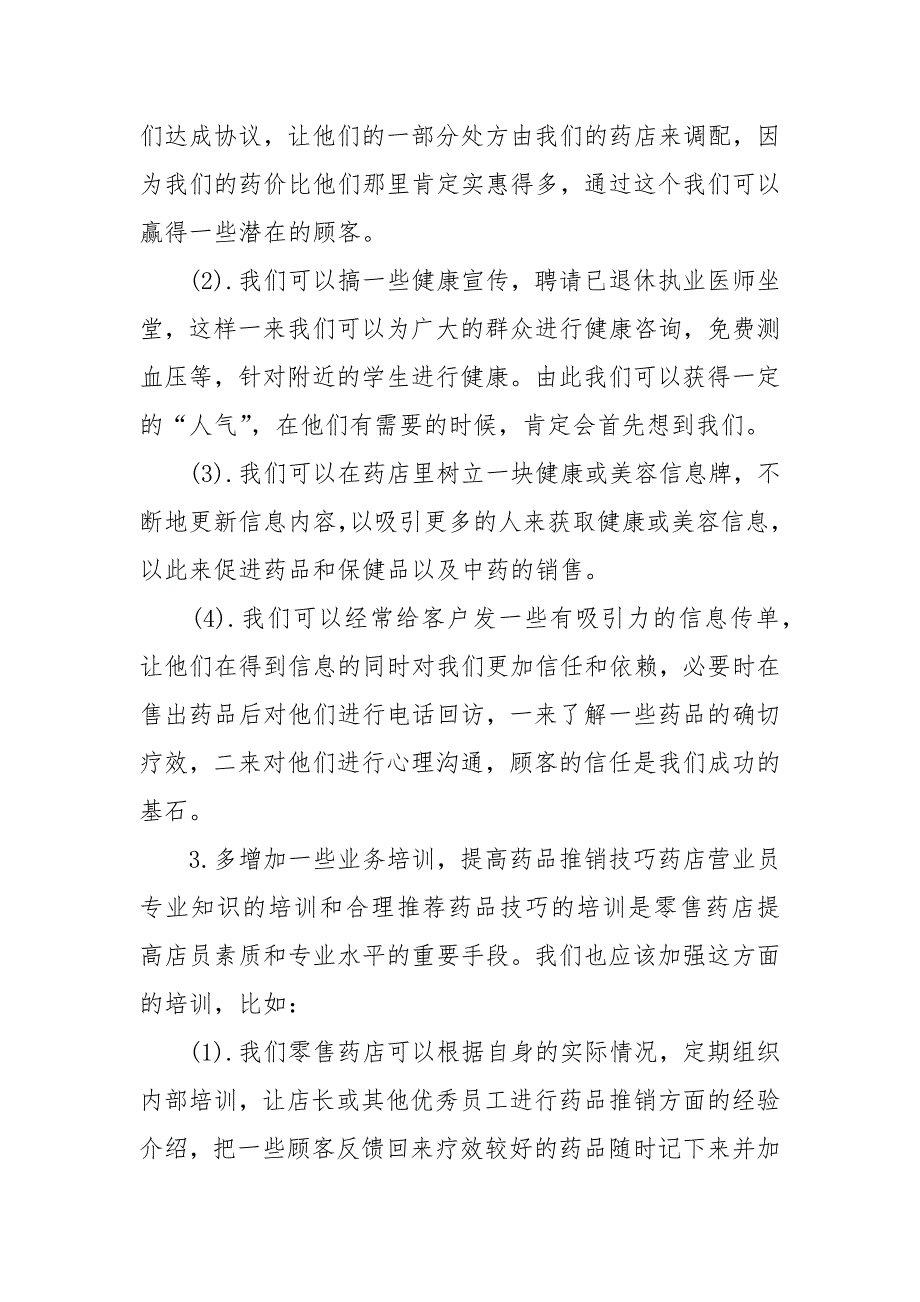 们达成协议，让他们的一部分处方由我们的药店来调配，因
为我们的药价比他们那里肯定实惠得多，通过这个我们可以
赢得一些潜在的顾客。
(2).我们可以搞一些健康宣传，聘请已退休执业医师坐
堂，这样一来我们可以为广大的群众进行健康咨询，免费测
血压等，针对附近的学生进行健康。由此我们可以获得一定
的“人气”，在他们有需要的时候，肯定会首先想到我们。
(3).我们可以在药店里树立一块健康或美容信息牌，不
断地更新信息内容，以吸引更多的人来获取健康或美容信息，
以此来促进药品和保健品以及中药的销售。
(4).我们可以经常给客户发一些有吸引力的信息传单，
让他们在得到信息的同时对我们更加信任和依赖，必要时在
售出药品后对他们进行电话回访，一来了解一些药品的确切
疗效，二来对他们进行心理沟通，顾客的信任是我们成功的
基石。
3.多增加一些业务培训，提高药品推销技巧药店营业员
专业知识的培训和合理推荐药品技巧的培训是零售药店提
高店员素质和专业水平的重要手段。我们也应该加强这方面
的培训，比如：
(1).我们零售药店可以根据自身的实际情况，定期组织
内部培训，让店长或其他优秀员工进行药品推销方面的经验
介绍，把一些顾客反馈回来疗效较好的药品随时记下来并加